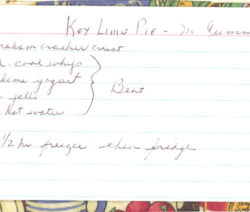 Key Lime Pie - 
graham cracker crust
cool whip
lime yogurt
jello
hot water
Beat
1/2 hr freezer - then fridge